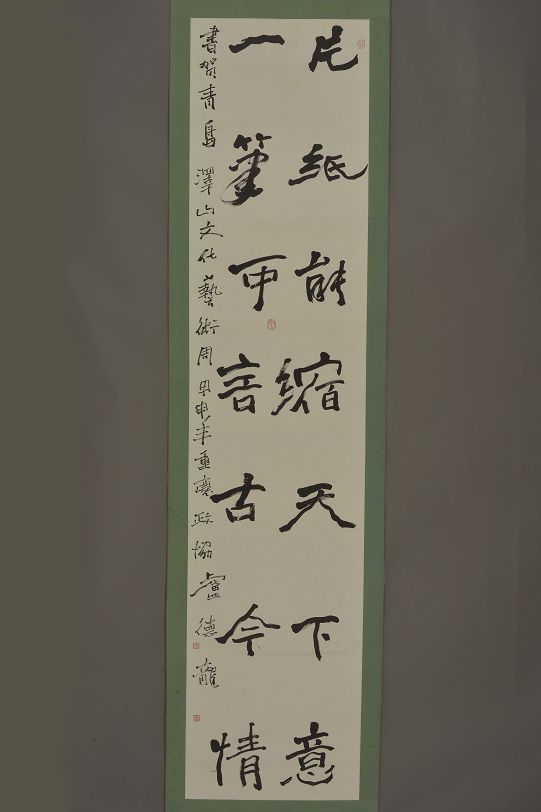 片紙能縮天下意
一筆可言古今情
書賀青島山文化藝術周甲申年重慶政協盧德龍